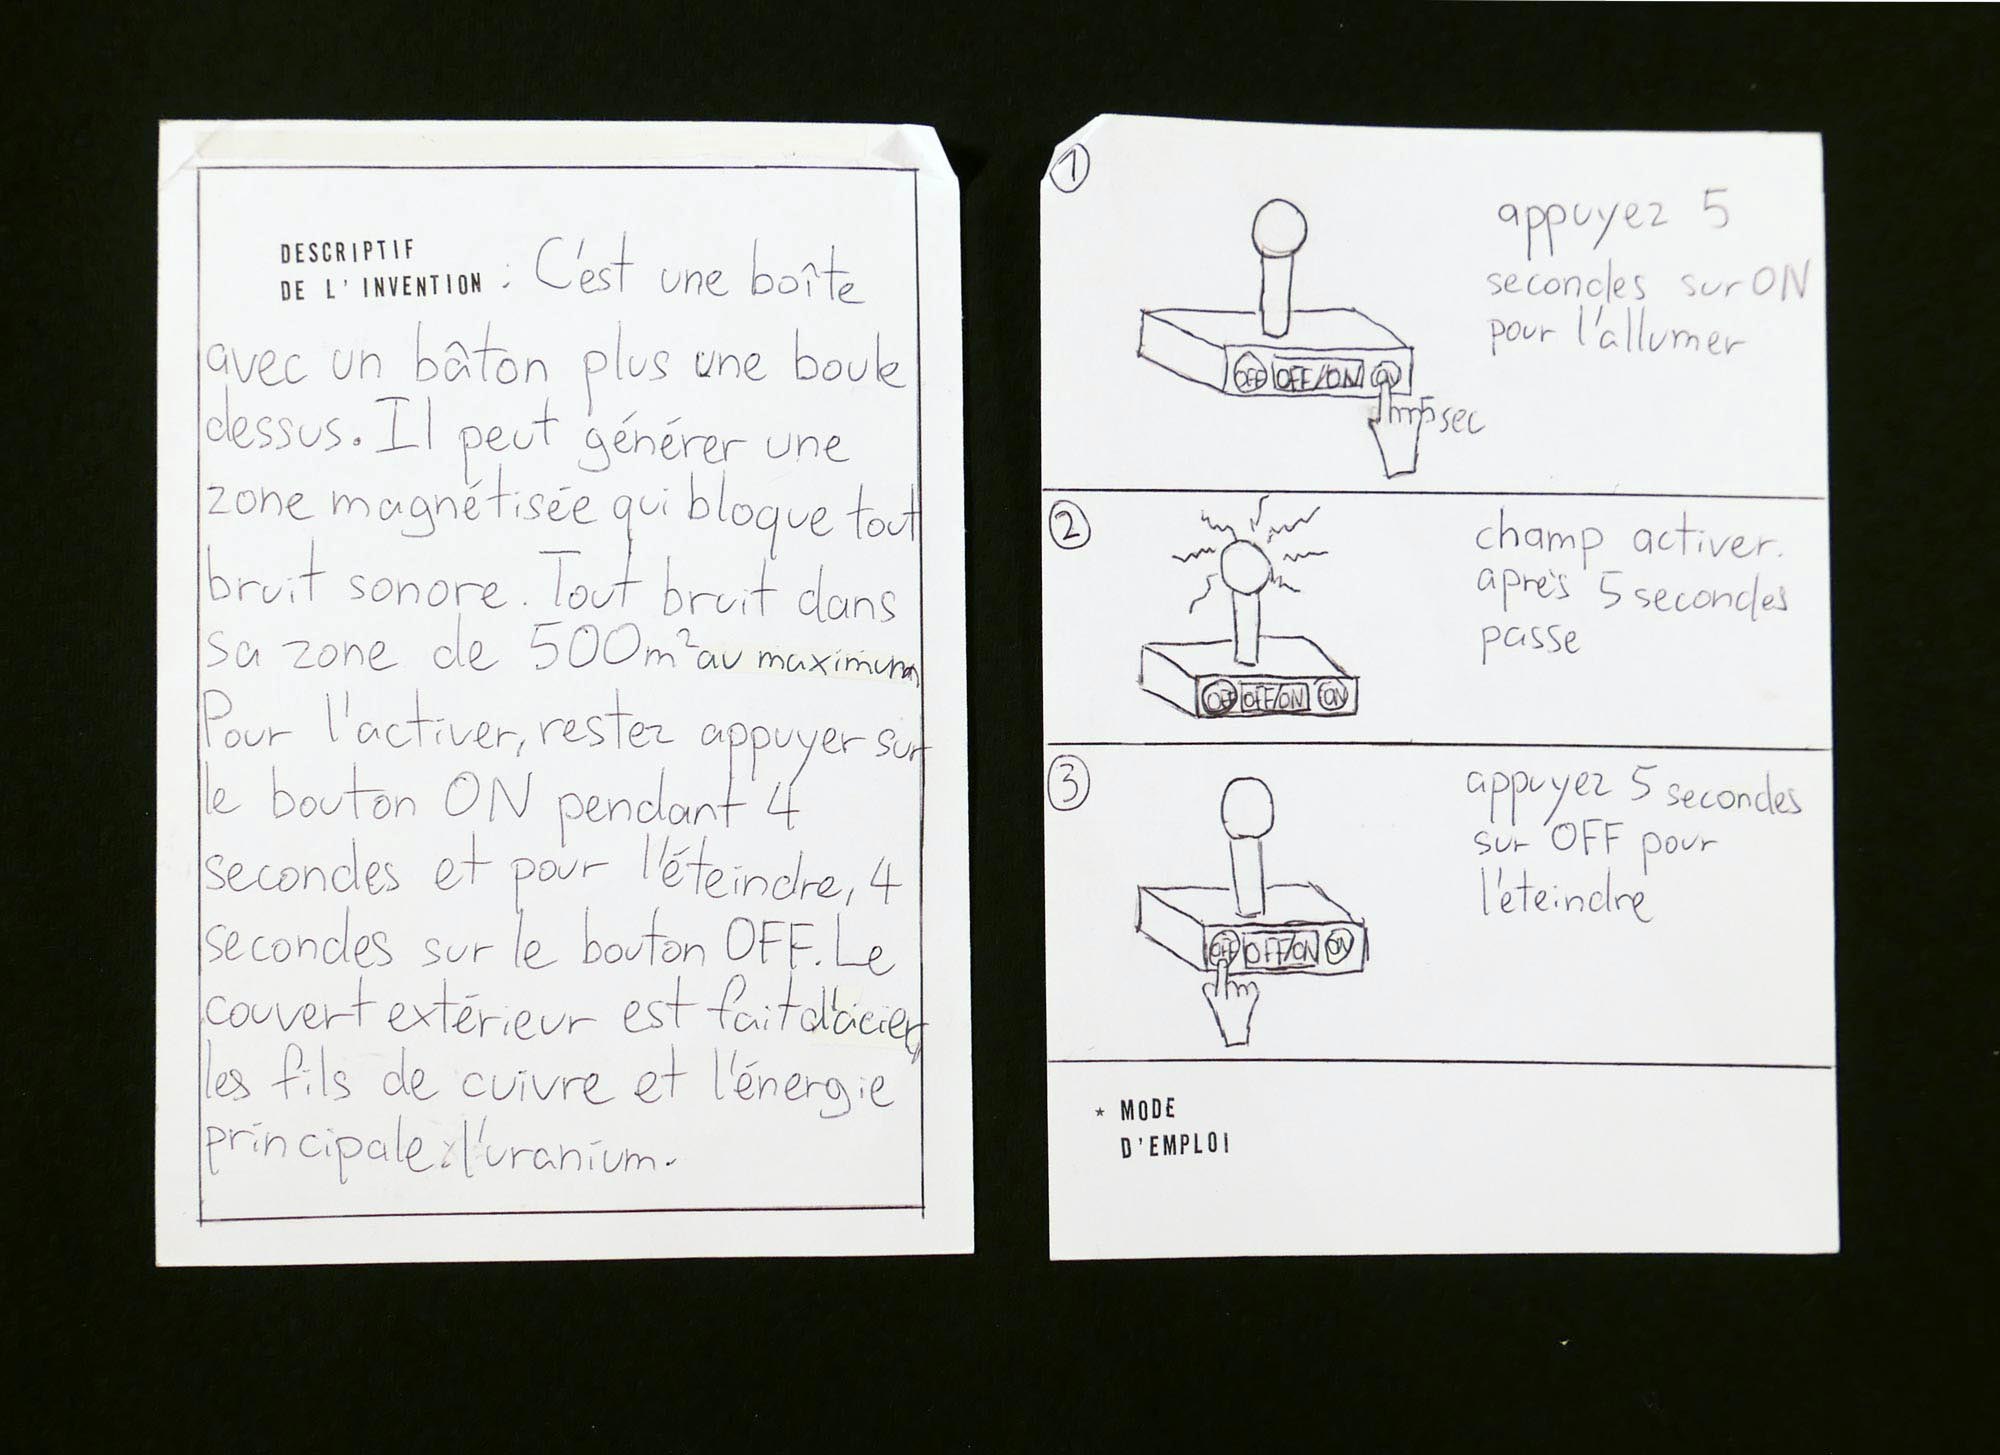 DESCRIPTIF
DE L'INVENTION : C'est une boîte
avec un bâton plus une boule
dessus. Il peut générer une
zone magnétisée qui bloque tout
bruit sonore. Tout bruit dans
sa zone de 500m² au maximum
Pour l'activer, restez appuyer sur
le bouton ON pendant 4
secondes et pour l'éteindre, 4
secondes sur le bouton OFF. Le
couvert extérieur est fait d'acier,
les fils de cuivre et l'énergie
principale : l'uranium.
1
appuyez 5
secondes sur ON
pour l'allumer
OFF OFF/ON ON
5 sec
2
champ activer.
après 5 secondes
passe
OFF OFF/ON ON
3
appuyez 5 secondes
sur OFF pour
l'éteindre
OFF OFF/ON ON
* MODE
D'EMPLOI